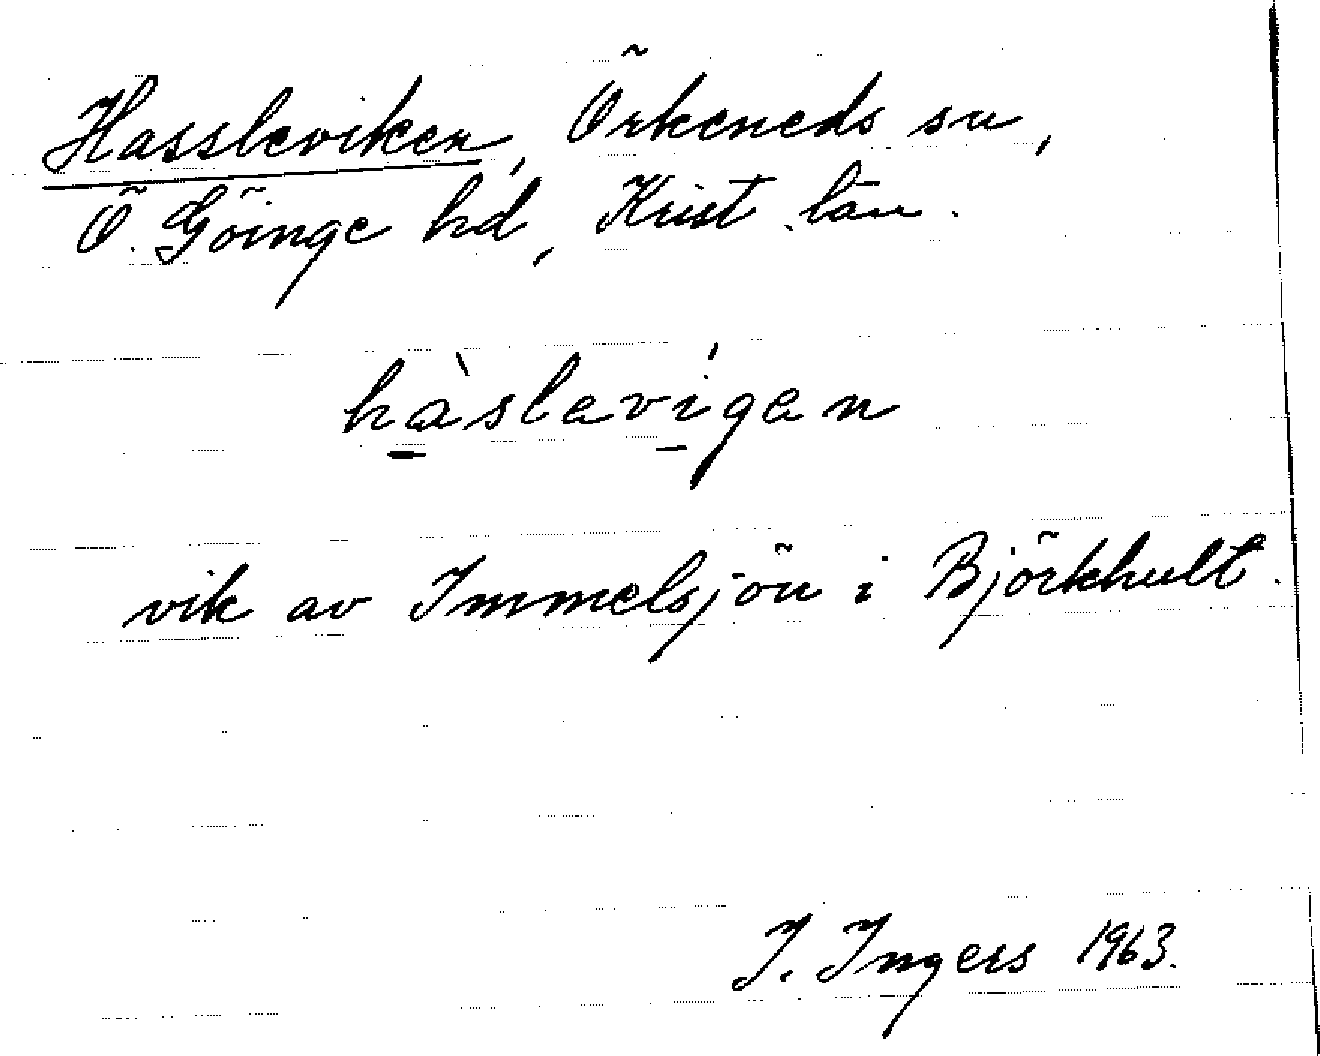 Hassleviken, Örkeneds sn,
Ö. Göinge hd, Krist. län.
hàslavígan
vik av Immelsjön i Björkhult.
I. Ingers 1963.